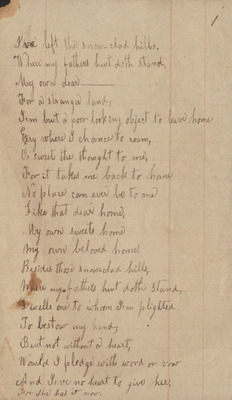 1
I've left the snow-clad hills,
Where my fathers hut doth stand,
My own dear
For a stranger land,
I'm but a poor looking object to leave home
Evry where I chance to roam,
O sweet the thought to me,
For it takes me back to home
No place can ever be to me
Like that dear home,
My own sweete home
My own beloved home!
Besides those snow-clad hills,
Where my fathers hut doth stand,
Dwells one to whom I'm plighted
To bestow my hand,
But not without a heart,
Would I pledge with word or vow
And I've no heart to give her,
For she has it now.